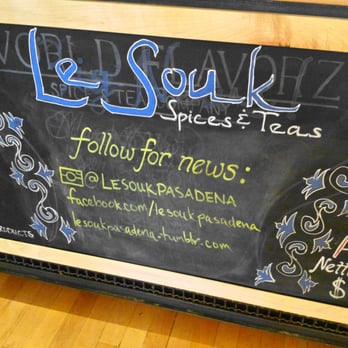 WORLD FLAVORZ
Le Souk
Spices & Teas
follow for news:
@LeSoukPasadena
facebook.com/lesoukpasadena
lesoukpasadena.tumblr.com
PRODUCTS
Nett
$